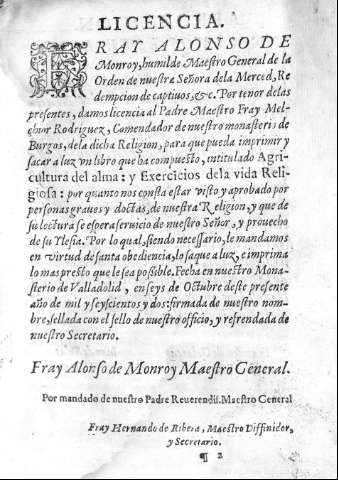 LICENCIA.
FRAY ALONSO DE
Monroy, humilde Maestro General de la
Orden de nuestra Señora dela Merced, Re
dempcion de captiuos, &c. Por tenor delas
presentes, damos licencia al Padre Maestro Fray Mel-
chor Rodriguez, Comendador de nuestro monasterio de
Burgos, dela dicha Religion, para que pueda imprimir y
sacar a luz vn libro que ha compuesto, intitulado Agri-
cultura del alma: y Exercicios dela vida Reli-
giosa: por quanto nos consta estar visto y aprobado por
personas graues y doctas, de nuestra Religion, y que de
su lectura se espera seruicio de nuestro Señor, y prouecho
de su Iglesia. Por lo qual, siendo necessario, le mandamos
en virtud de santa obediencia, lo saque a luz, e imprima
lo mas presto que le sea possible. Fecha en nuestro Mona-
sterio de Valladolid, en seys de Octubre deste presente
año de mil y seyscientos y dos: firmada de nuestro nom-
bre, sellada con el sello de nuestro officio, y refrendada de
nuestro Secretario.
Fray Alonso de Monroy Maestro General.
Por mandado de nuestro Padre Reuerendis. Maestro General
Fray Hernando de Ribera, Maestro Diffinidor,
y Secretario.
¶ 2